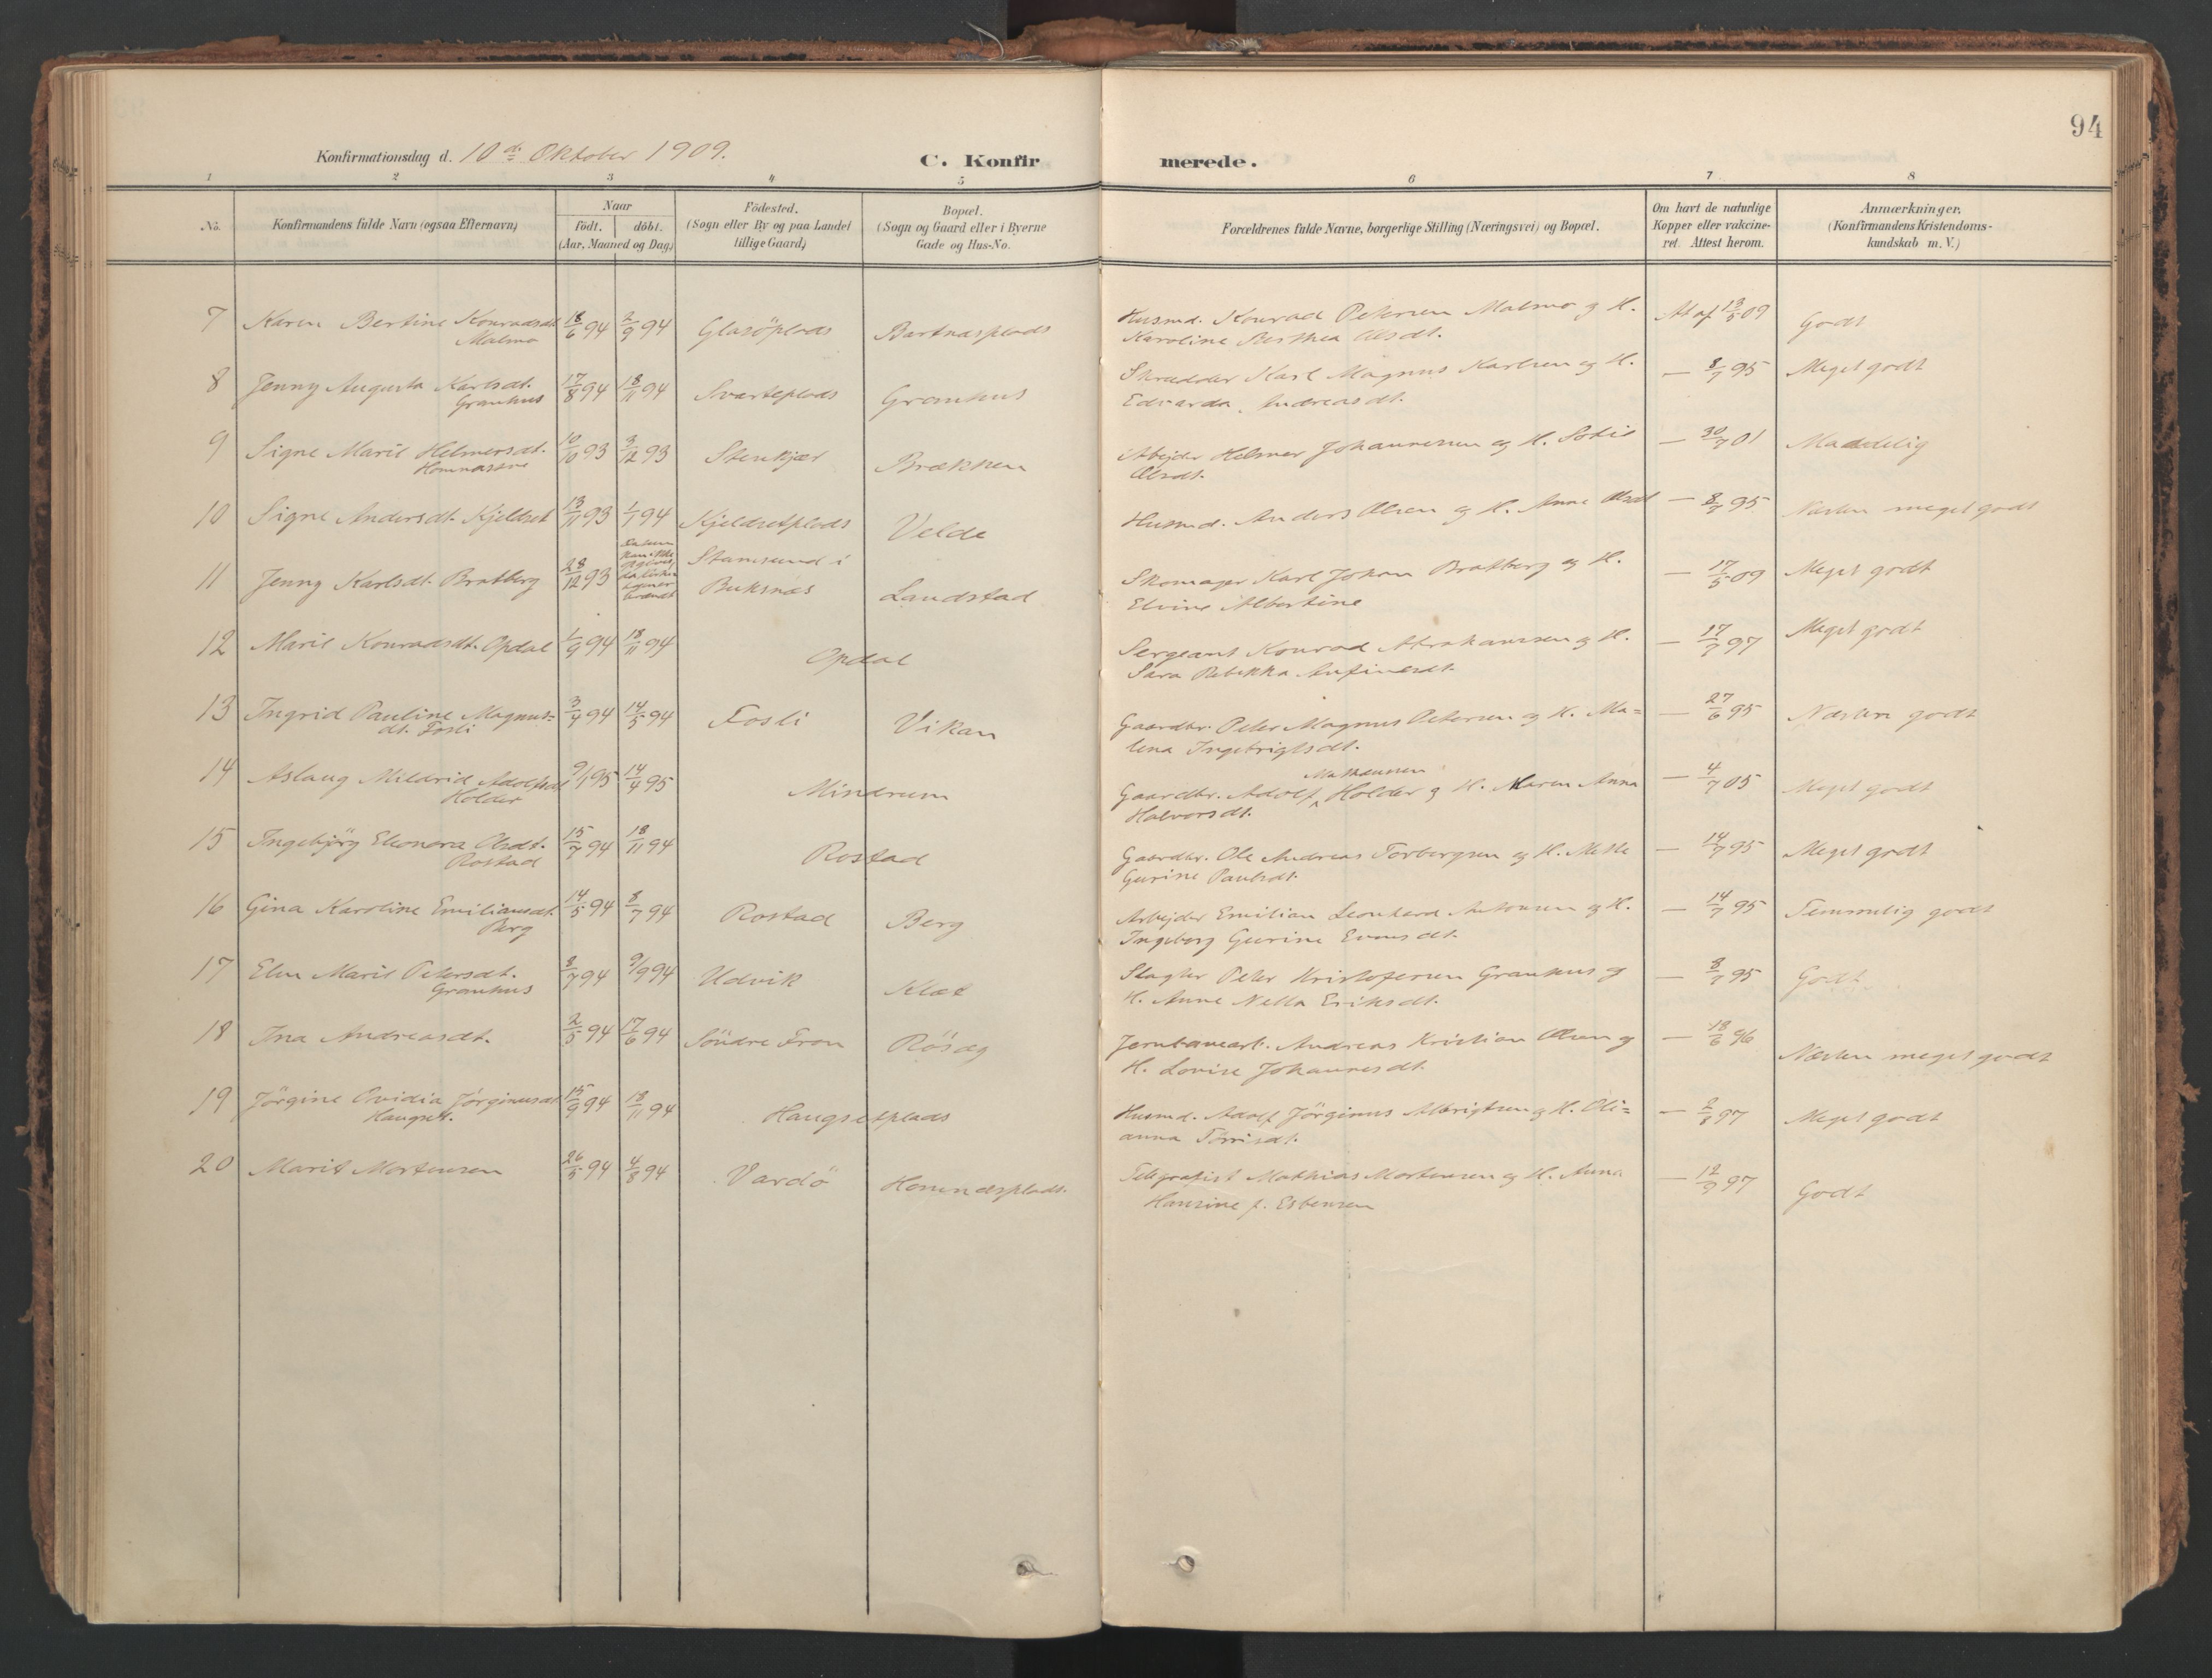 94
Konfirmationsdag d. 10de Oktober 1909.
C. Konfirmerede.
1 2 3 4 5 6 7 8
No.
Konfirmandens fulde Navn (ogsaa Efternavn)
Naar
födt. döbt.
(Aar, Maaned og Dag)
Födested.
(Sogn eller By og paa Landet
tillige Gaard)
Bopæl.
(Sogn og Gaard eller i Byerne
Gade og Hus-No.
Forældrenes fulde Navne, borgerlige Stilling (Næringsvei) og Bopæl.
Om havt de naturlige
Kopper eller vakcine-
ret. Attest herom.
Anmærkninger.
(Konfirmandens Kristendoms-
kundskab m. V.)
7 Karen Bertine Konradsdt. 18/6 94 2/9 94 Glasöplads Bartnasplads Husmd. Konrad Petersen Malmo og H. At af 13/5 09 Godt
Malmo Karoline Olsdt.
8 Jenny Augusta Karlsdt. 17/8 94 18/11 94 Svarteplads Granhus Skrædder Karl Magnus Karlsen og H. — 8/7 95 Meget godt
Granhus Edvarda Andreasdt.
9 Signe Marie Helmersdt. 10/10 93 3/12 93 Stenkjær Brækken Arbejder Helmer Johannesen og H. Sofie — 30/7 01 Maadelig
Olsdt.
10 Signe Andersdt. Kjeldset 13/11 93 1/1 94 Kjeldsetplads Velde Husmd. Anders Olsen og H. Anne Olsdt — 8/7 95 Næsten meget godt
11 Jenny Karlsdt. Bratberg 28/12 93 Stamsund i Landstad Skomager Karl Johan Bratberg og H. — 17/5 09 Meget godt
Buksnæs Elvine Albertine
12 Marie Konradsdt. Opdal 1/9 94 18/11 94 Opdal Sergeant Konrad Abrahamsen og H. — 17/7 97 Meget godt
Sara Rebekka Anfinsdt.
13 Ingrid Pauline Magnus= 3/4 94 14/5 94 Fosli Vikan Gaardbr. Peter Magnus Petersen og H. Ma= — 27/6 95 Næsten godt
dt. Fosli lena Ingebrigtsdt.
14 Aslaug Mildrid Adolfsdt 9/1 95 14/4 95 Mindrum Gaardbr. Adolf Mathausen Holder og H. Maren Anna — 4/7 05 Meget godt
Holder Halvorsdt.
15 Ingebjörg Eleonora Olsdt. 15/7 94 18/11 94 Rostad Gaardbr. Ole Andreas Torbergsen og H. Mette — 14/7 95 Meget godt
Rostad Gurine Paulsdt.
16 Gina Karoline Emiliansdt. 14/5 94 8/7 94 Rostad Berg Arbejder Emilian Leonhard Antonsen og H. — 14/7 95 Temmelig godt
Berg Ingeborg Gurine Evensdt.
17 Elen Marie Petersdt. 8/7 94 9/9 94 Udvik Klæt Slagter Peter Kristofersen Granhus og — 8/7 95 Godt
Granhus H. Anne Nella Eriksdt.
18 Ina Andreasdt. 2/5 94 17/6 94 Söndre Fron Rösæg Jernbanearb. Andreas Kristian Olsen og — 18/6 96 Næsten meget godt
H. Lovise Johannesdt.
19 Jörgine Ovidia Jørginusdt 15/9 94 18/11 94 Haugsetplads Husmd. Adolf Jörginus Albrigtsen og H. Oli= — 2/8 97 Meget godt
Haugset. anna Törrisdt.
20 Marit Mortensen 26/5 94 4/8 94 Vardö Homnæsplads. Telegrafist Mathias Mortensen og H. Anna — 12/9 97 Godt
Hansine f. Esbensen